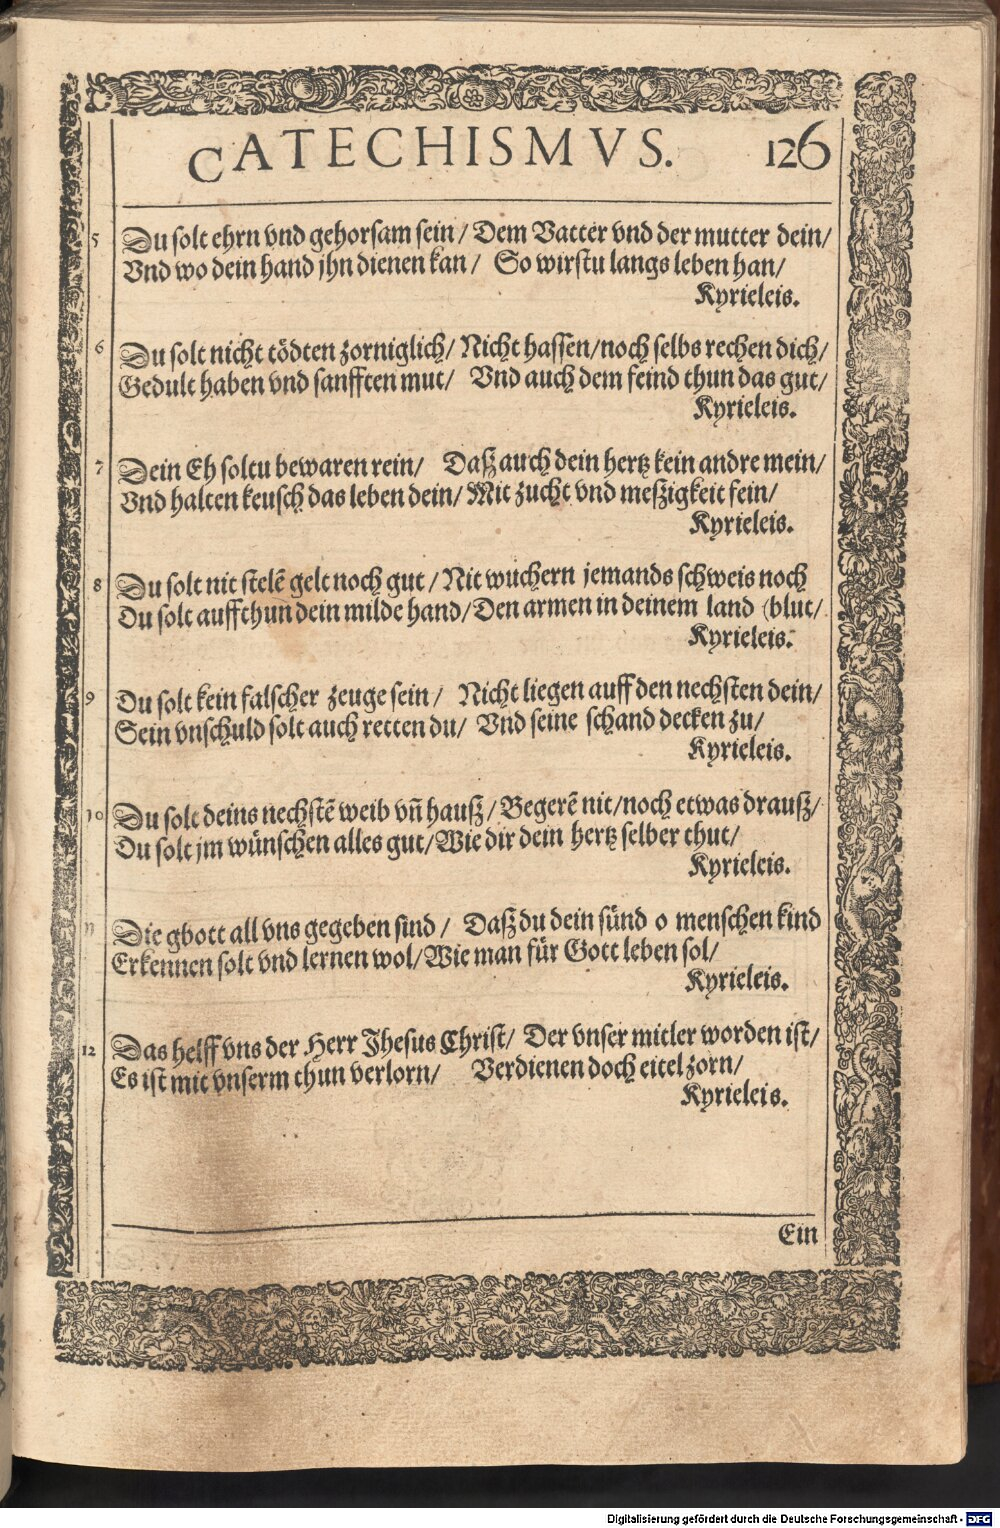 CATECHISMVS. 126
5 Du solt ehrn vnd gehorsam sein/ Dem Vatter vnd der mutter dein/
Vnd wo dein hand jhn dienen kan/ So wirstu langs leben han/
Kyrieleis.
6 Du solt nicht tödten zorniglich/ Nicht hassen/ noch selbs rechen dich/
Gedult haben vnd sanfften mut/ Vnd auch dem feind thun das gut/
Kyrieleis.
7 Dein Eh soltu bewaren rein/ Daß auch dein hertz kein andre mein/
Vnd halten keusch das leben dein/ Mit zucht vnd meßigkeit fein/
Kyrieleis.
8 Du solt nit stelē gelt noch gut/ Nit wuchern jemands schweis noch
Du solt auffthun dein milde hand/ Den armen in deinem land (blut/
Kyrieleis.
9 Du solt kein falscher zeuge sein/ Nicht liegen auff den nechsten dein/
Sein vnschuld solt auch retten du/ Vnd seine schand decken zu/
Kyrieleis.
10 Du solt deins nechstē weib vn̄ hauß/ Begerē nit/ noch etwas drauß/
Du solt jm wünschen alles gut/ Wie dir dein hertz selber thut/
Kyrieleis.
11 Die gbott all vns gegeben sind/ Daß du dein sünd o menschen kind
Erkennen solt vnd lernen wol/ Wie man für Gott leben sol/
Kyrieleis.
12 Das helff vns der Herr Jhesus Christ/ Der vnser mitler worden ist/
Es ist mit vnserm thun verlorn/ Verdienen doch eitel zorn/
Kyrieleis.
Ein
Digitalisierung gefördert durch die Deutsche Forschungsgemeinschaft - DFG